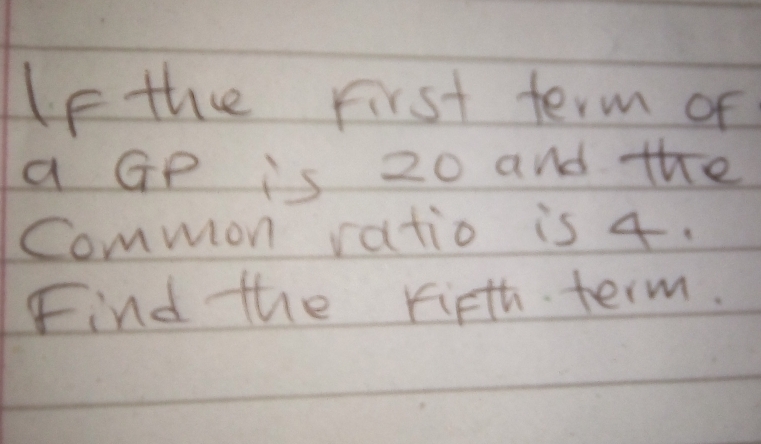 If the First term of
a GP is 20 and the
Common ratio is 4.
Find the Fifth term.